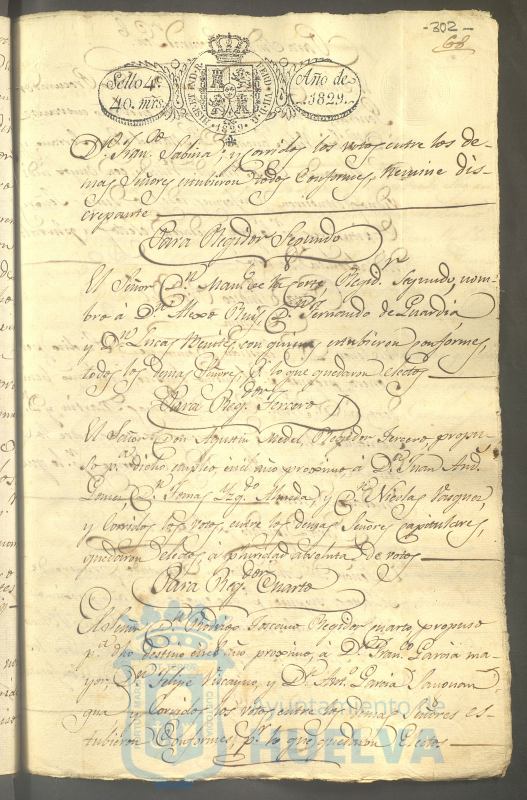 -302-
68
Sello 4º
40. mrs.
Año de
1829.
HISPANIAR. REX
1829
Dn Franco Sabina, y corridos los votos entre los de-
mas Señores estubieron todos conformes, Nemine dis-
crepante
Para Regidor Segundo
El Señor Dn Manl de la Corte, Regidr Segundo, nom-
bro á Dn Alexo Ruiz, Dn Fernando de Guardia
y Dn Lucas Benites, con quienes estubieron conformes,
todos los demas Señores, pr lo que quedaron electos
Para Regdor Tercero
El Señor Don Agustin Medel, Regidor Tercero, propu-
so pa dicho empleo en el año proximo á Dn Juan And.
Dn Tomas Izqdo y Dn Nicolas Vasquez,
y Corridos los votos, entre los demas Señores capitulares,
quedaron electos á pluridad absoluta de votos
Para Regdor Cuarto
El Señor Dn Rodrigo Regidor cuarto, propuso
pa dho destino en el año proximo, a Dn Franco Garcia ma-
yor, Dn Felipe Viscayno, y Dn Anto Garcia
y Corridos los votos entre los demas Señores es-
tubieron Conformes, pr lo que quedaron Electos
Ayuntamiento de
HUELVA